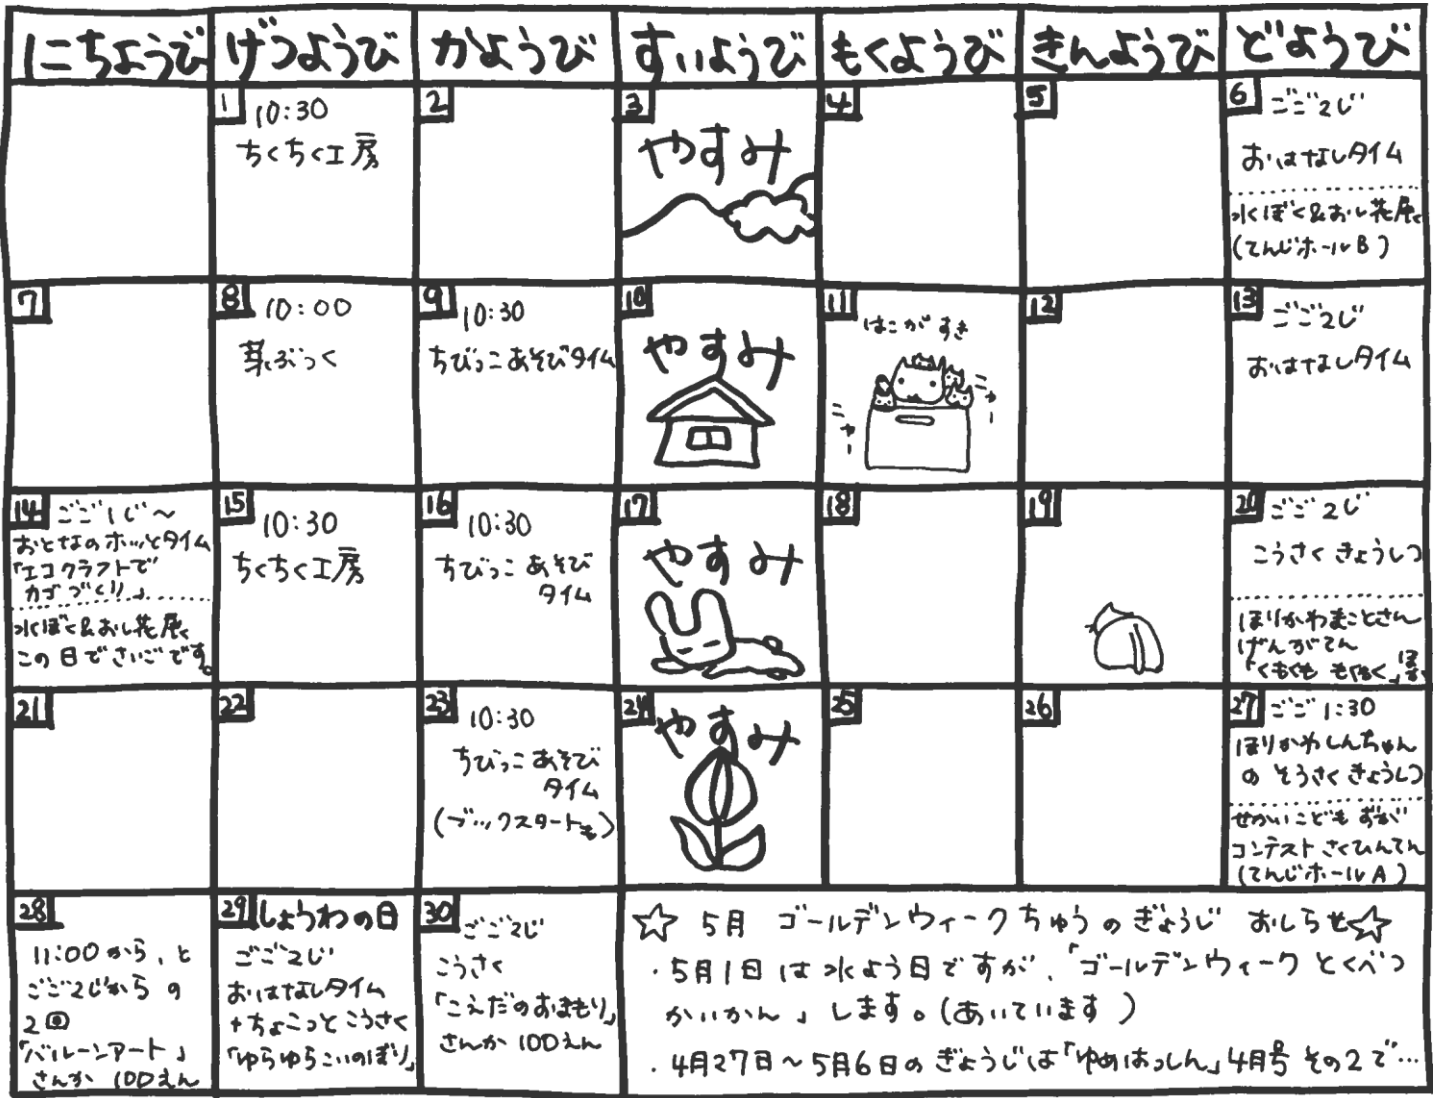 にちようび げつようび かようび すいようび もくようび きんようび どようび
1 10:30
ちくちく工房
2
3
やすみ
4
5
6 ごご2じ
おはなしタイム
水ぼく&おし花展
(てんじホールB)
7
8 10:00
芽ぶっく
9 10:30
ちびっこあそびタイム
10
やすみ
11
はこが すき
ニャー
ニャー
12
13 ごご2じ
おはなしタイム
14 ごご1じ〜
おとなのホッとタイム
「エコクラフトで
カゴづくり」
水ぼく&おし花展
この日でさいごです。
15 10:30
ちくちく工房
16 10:30
ちびっこ あそび
タイム
17
やすみ
18
19
20 ごご2じ
こうさく きょうしつ
ほりかわまことさん
げんがてん
「くもくも もくもく」ほか
21
22
23 10:30
ちびっこ あそび
タイム
(ブックスタートも)
24
やすみ
25
26
27 ごご1:30
ほりかわしんちゃん
の そうさく きょうしつ
せかいこども ずが
コンテスト さくひんてん
(てんじホールA)
28
11:00から、と
ごご2じからの
2回
「バルーンアート」
さんか 100えん
29 しょうわの日
ごご2じ
おはなしタイム
+ちょこっとこうさく
「ゆらゆらこいのぼり」
30 ごご2じ
こうさく
「こえだのおまもり」
さんか 100えん
☆ 5月 ゴールデンウィークちゅうのぎょうじ おしらせ☆
・5月1日は水よう日ですが、「ゴールデンウィークとくべつ
かいかん」します。(あいています)
・4月27日〜5月6日のぎょうじは「ゆめはっしん」4月号 その2で…